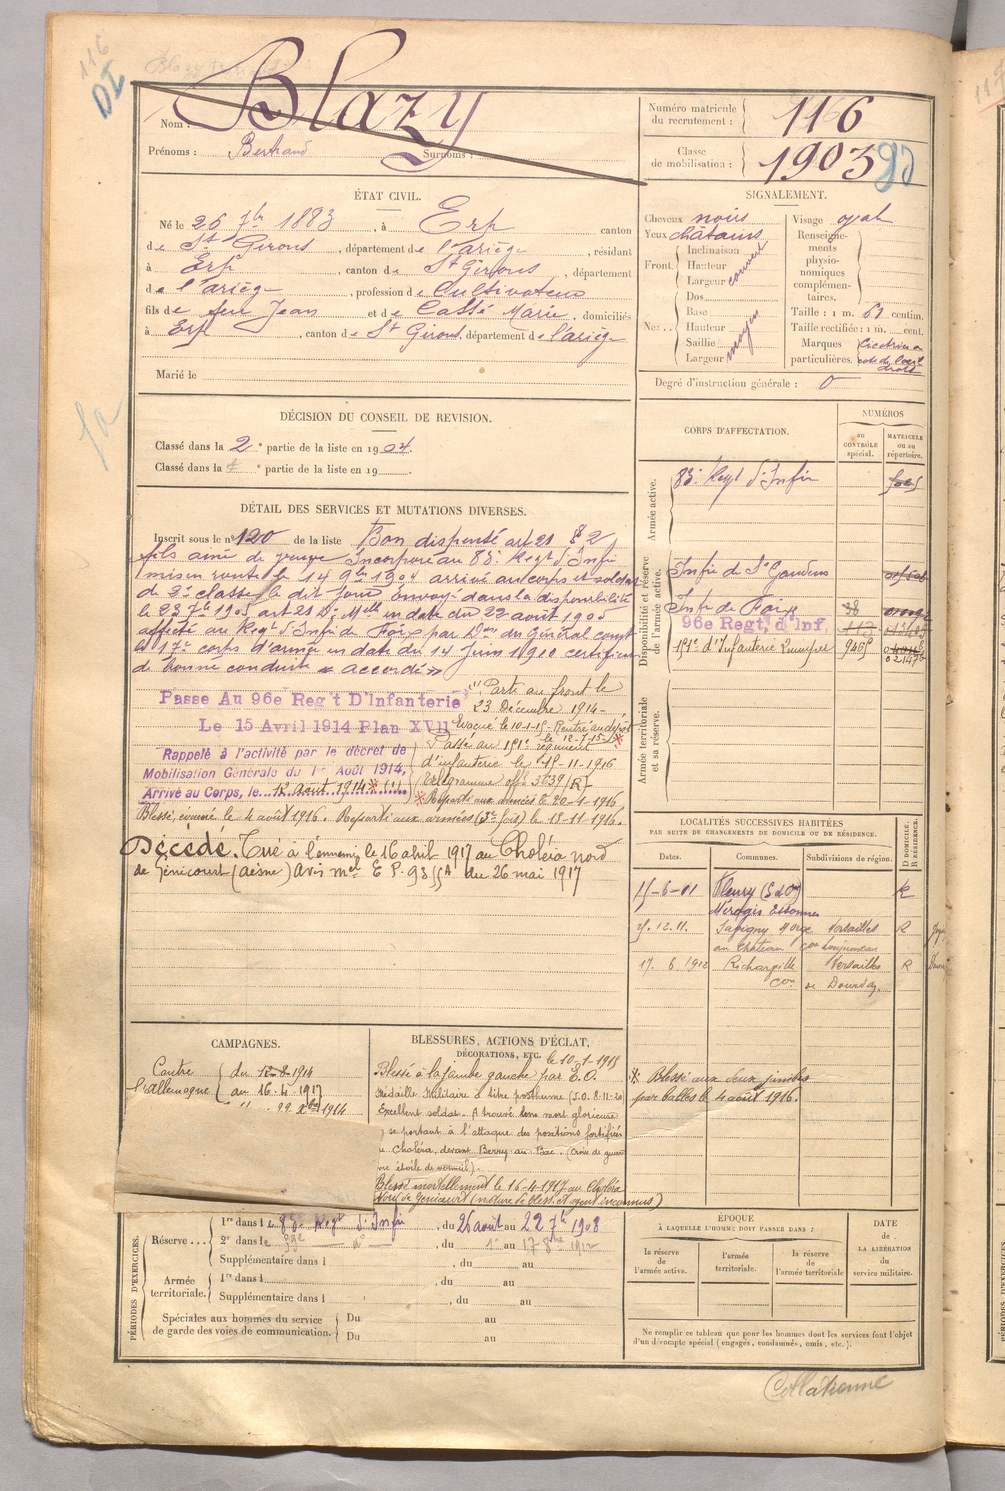 116
DI
Nom : Blazy
Prénoms : Bertrand Surnoms :
Numéro matricule du recrutement : 116
Classe de mobilisation : 1903
ÉTAT CIVIL.
Né le 26 7bre 1883, à Erp canton
de St Girons, département de l'ariège, résidant
à Erp, canton de St Girons, département
de l'ariège, profession de Cultivateur
fils de feu Jean et de Cassé Marie, domiciliés
à Erp, canton de St Girons, département de l'ariège
Marié le
SIGNALEMENT.
Cheveux noirs
Yeux châtains
Front. Inclinaison
Hauteur
Largeur couvert
Nez... Dos
Base
Hauteur
Saillie
Largeur moyen
Visage oval
Renseignements physionomiques complémentaires.
Taille : 1 m. 63 centim.
Taille rectifiée : 1 m. cent.
Marques particulières. Cicatrice a
droit
Degré d'instruction générale : 0
DÉCISION DU CONSEIL DE REVISION.
Classé dans la 2e partie de la liste en 1904.
Classé dans la e partie de la liste en 19
DÉTAIL DES SERVICES ET MUTATIONS DIVERSES.
Inscrit sous le n° 120 de la liste Bon dispensé art 21 § 2
fils ainé de veuve Incorporé au 83e Regt d'Infie
mis en route le 14 9bre 1904 arrivé au corps et soldat
de 2e classe le dit jour envoyé dans la disponibilité
le 23 7bre 1905 art 21 Don Melle en date du 22 août 1905
affecté au Regt d'Infie de Foix par Don du Général comt
le 17e corps d'armée en date du 14 Juin 1910 certificat
de bonne conduite « accordé »
Passe Au 96e Reg't D'Infanterie
Le 15 Avril 1914 Plan XVII
Rappelé à l'activité par le décret de
Mobilisation Générale du 1er Août 1914,
Arrivé au Corps, le 12 Août 1914 (1)
(1) Parti au front le
23 Décembre 1914 -
Evacué le 10-1-15 - Rentré au dépôt
le 12-7-15
Passé au 151e régiment
d'infanterie le 15-11-1916
(Télégramme offl 5639/R)
Reparti aux armées le 20-1-1916
Blessé, évacué le 4 août 1916. Reparti aux armées (3e fois) le 15-11-1916.
Décédé. Tué à l'ennemi le 16 avril 1917 au Choléra nord
de Génicourt (aisne) avis mel E P. 93 du 26 mai 1917
CORPS D'AFFECTATION.
NUMÉROS
au CONTRÔLE spécial.
MATRICULE ou au répertoire.
Armée active.
83e Regt d'Infie
Disponibilité et réserve de l'armée active.
Infie de St Gaudens
Infie de Foix
96e Regt, d'Inf.
151e d'Infanterie Quimper 9465
Armée territoriale et sa réserve.
LOCALITÉS SUCCESSIVES HABITÉES
PAR SUITE DE CHANGEMENTS DE DOMICILE OU DE RÉSIDENCE.
Dates. Communes. Subdivisions de région. D DOMICILE. R RÉSIDENCE.
Fleury (S et O) R
Mérogis Essonne
12.11. Savigny s/ Orge Versailles R
au Château con Longjumeau
17. 6. 1912 Richarville Versailles R
Con de Dourdan.
Blessé aux deux jambes
par balles le 4 août 1916.
CAMPAGNES.
Contre l'Allemagne du 12-8-1914
au 16-4-1917
BLESSURES, ACTIONS D'ÉCLAT, DÉCORATIONS, ETC.
le 10-1-1915
Blessé à la jambe gauche par E.O.
Médaille Militaire à titre posthume (J.O. 8-11-20)
Excellent soldat. A trouvé une mort glorieuse
se portant à l'attaque des positions fortifiées
Choléra, devant Berry au Bac. (Croix de guerre
étoile de vermeil).
Blessé mortellement le 16-4-1917 au Choléra
Nord de Génicourt (nature de bless. et agent inconnus)
PÉRIODES D'EXERCICES.
Réserve... 1re dans le 83e Regt d'Infie, du 26 août au 22 7bre 1908
2e dans le , du 1er au 17 1912
Supplémentaire dans l , du au
Armée territoriale. 1re dans l , du au
Supplémentaire dans l , du au
Spéciales aux hommes du service de garde des voies de communication. Du au
Du au
ÉPOQUE
À LAQUELLE L'HOMME DOIT PASSER DANS :
la réserve de l'armée active.
l'armée territoriale.
la réserve de l'armée territoriale
DATE de LA LIBÉRATION du service militaire.
Ne remplir ce tableau que pour les hommes dont les services font l'objet
d'un décompte spécial (engagés, condamnés, omis, etc.).
Collationné